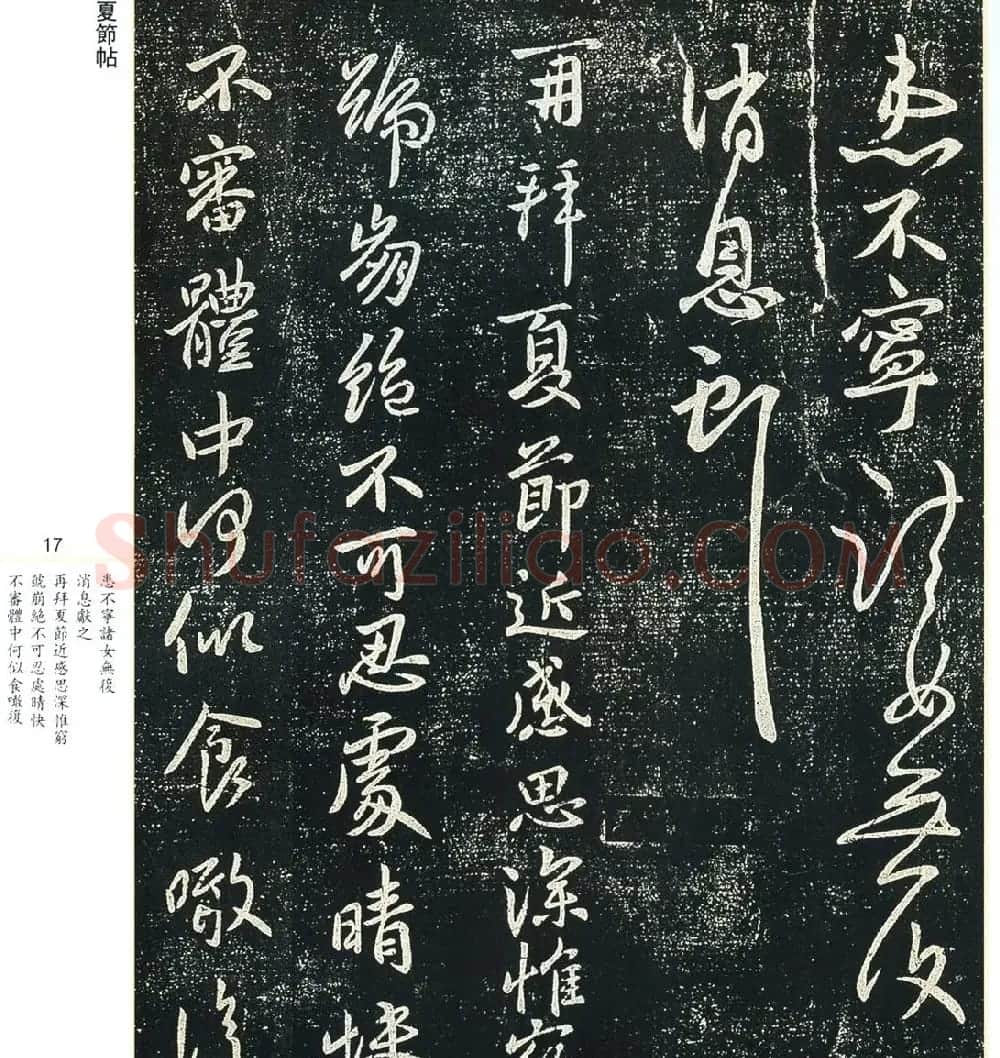 恚不寧諸女無復
消息獻之
再拜夏節近感思深惟窮
號崩絕不可忍處晴快
不審體中何似食噉復
夏節帖
17
恚不寧諸女無復
消息獻之
再拜夏節近感思深惟窮
號崩絕不可忍處晴快
不審體中何似食噉復
Shufaziliao.COM